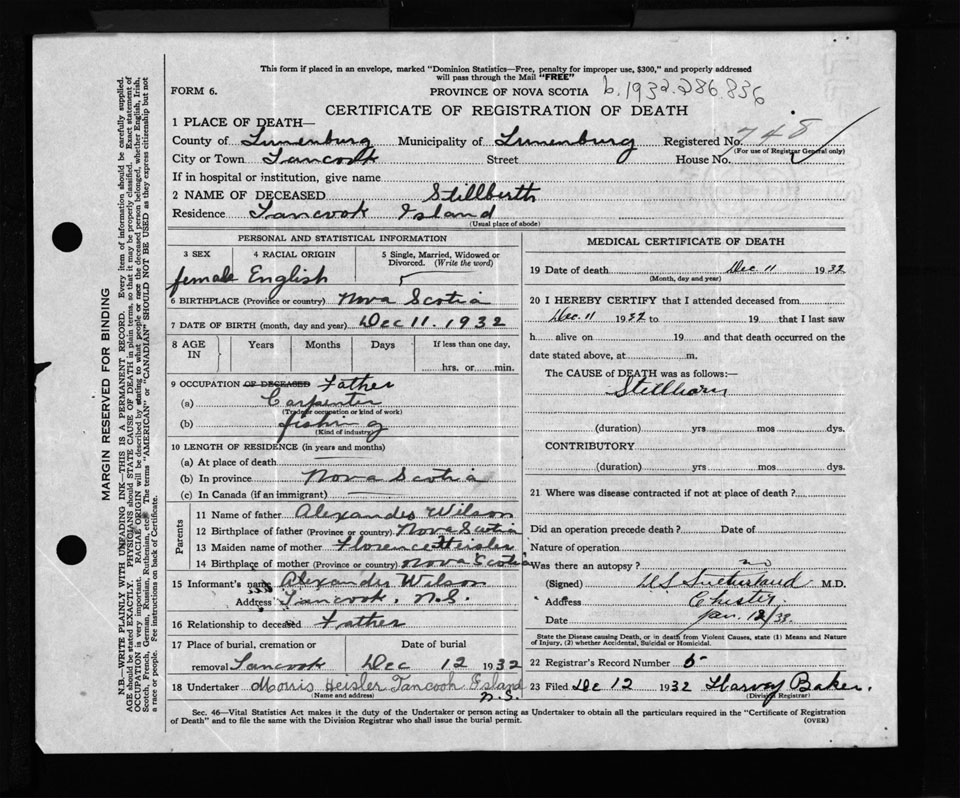 This form if placed in an envelope, marked "Dominion Statistics—Free, penalty for improper use, $300," and properly addressed
will pass through the Mail "FREE"
FORM 6. PROVINCE OF NOVA SCOTIA b.1932.286.836
CERTIFICATE OF REGISTRATION OF DEATH
1 PLACE OF DEATH—
County of Lunenburg Municipality of Lunenburg Registered No. 748
(For use of Registrar General only)
City or Town Tancook Street House No.
If in hospital or institution, give name
2 NAME OF DECEASED Stillbirth
Residence Tancook Island
(Usual place of abode)
PERSONAL AND STATISTICAL INFORMATION
3 SEX 4 RACIAL ORIGIN 5 Single, Married, Widowed or
Divorced. (Write the word)
female English
6 BIRTHPLACE (Province or country) Nova Scotia
7 DATE OF BIRTH (month, day and year) Dec 11. 1932
8 AGE IN Years Months Days If less than one day,
hrs. or min.
9 OCCUPATION OF DECEASED Father
(a) Carpenter
(Trade or occupation or kind of work)
(b) fishing
(Kind of industry)
10 LENGTH OF RESIDENCE (in years and months)
(a) At place of death
(b) In province Nova Scotia
(c) In Canada (if an immigrant)
Parents
11 Name of father Alexander Wilson
12 Birthplace of father (Province or country) Nova Scotia
13 Maiden name of mother Florence Heisler
14 Birthplace of mother (Province or country) Nova Scotia
15 Informant's name Alexander Wilson
Address Tancook, N.S.
16 Relationship to deceased Father
17 Place of burial, cremation or Date of burial
removal Tancook Dec 12 1932
18 Undertaker Morris Heisler Tancook Island
(Name and address) N.S.
MEDICAL CERTIFICATE OF DEATH
19 Date of death Dec 11 1932
(Month, day and year)
20 I HEREBY CERTIFY that I attended deceased from
Dec 11 1932 to 19 that I last saw
h alive on 19 and that death occurred on the
date stated above, at m.
The CAUSE of DEATH was as follows:—
Stillborn
(duration) yrs mos. dys.
CONTRIBUTORY
(duration) yrs mos. dys.
21 Where was disease contracted if not at place of death?
Did an operation precede death? Date of
Nature of operation
Was there an autopsy? no
(Signed) Sutherland M.D.
Address Chester
Date Jan. 12/33.
State the Disease causing Death, or in death from Violent Causes, state (1) Means and Nature
of Injury, (2) whether Accidental, Suicidal or Homicidal.
22 Registrar's Record Number 5
23 Filed Dec 12 1932 Harvey Baker.
(Division Registrar)
Sec. 46—Vital Statistics Act makes it the duty of the Undertaker or person acting as Undertaker to obtain all the particulars required in the "Certificate of Registration
of Death" and to file the same with the Division Registrar who shall issue the burial permit. (OVER)
MARGIN RESERVED FOR BINDING
N.B.—WRITE PLAINLY WITH UNFADING INK—THIS IS A PERMANENT RECORD. Every item of information should be carefully supplied.
AGE should be stated EXACTLY. PHYSICIANS should STATE CAUSE OF DEATH in plain terms, so that it may be properly classified. Exact statement of
OCCUPATION is very important. RACIAL ORIGIN will be described by stating to what people or race the deceased person belonged, whether English, Irish,
Scotch, French, German, Russian, Ruthenian, etc. The terms "AMERICAN" or "CANADIAN" SHOULD NOT BE USED as they express citizenship but not
a race or people. See instructions on back of Certificate.